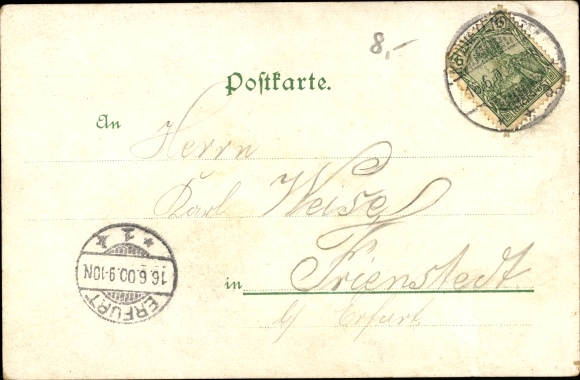 8,-
Postkarte.
An
Herrn
Karl Weise
in Frienstedt.
b/ Erfurt
* 1 k
16.6.00.9-10N
ERFURT